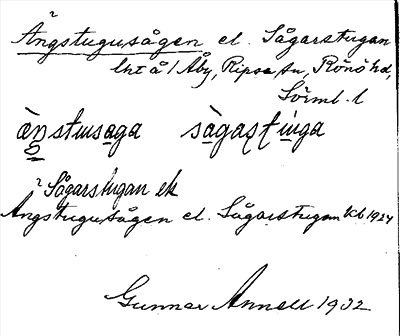 Ängstugusågen el. Sågarstugan
lht å 1 Åby, Ripsa sn, Rönö hd,
Sörml. l
ä̀nstɯsaga sàgaʂtɯ́ga
Sågarstugan ek
Ängstugusågen el. Sågarstugan kb 1924
Gunnar Annell 1932